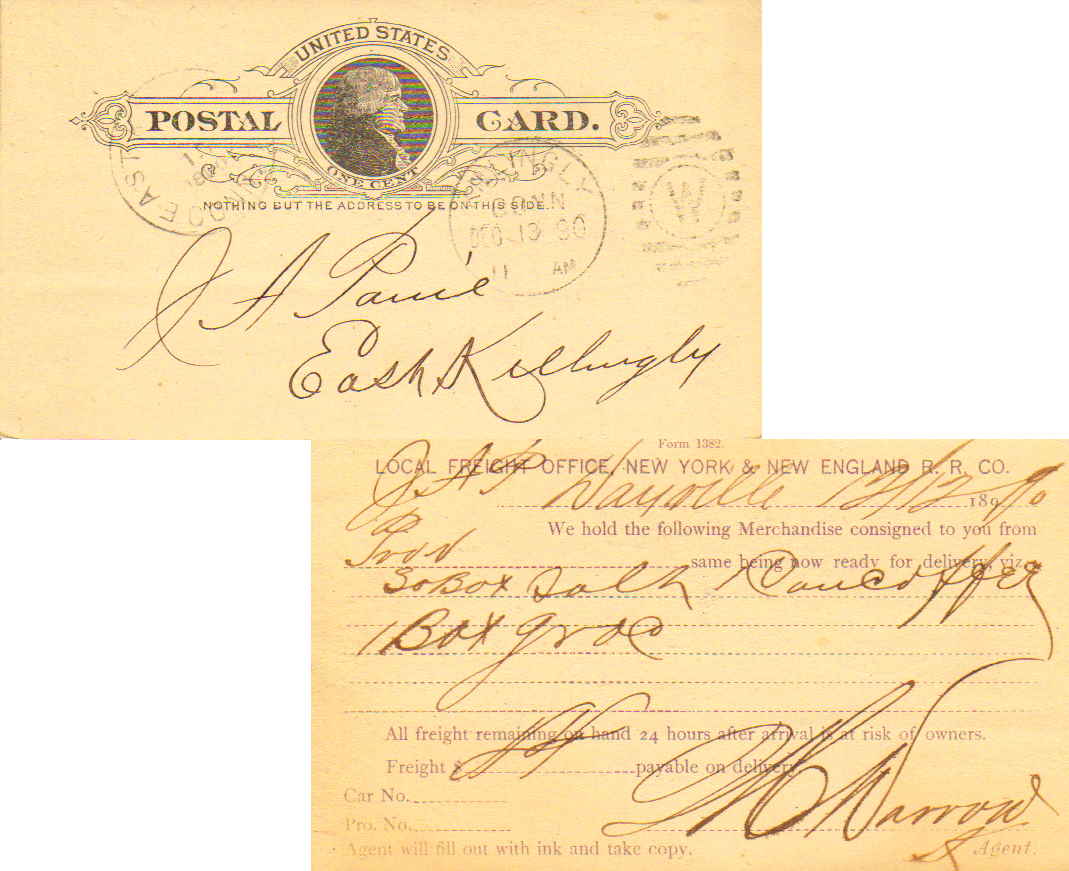 UNITED STATES
POSTAL CARD.
ONE CENT
NOTHING BUT THE ADDRESS TO BE ON THIS SIDE.
EAST
KILLINGLY
CONN
DEC 13 90
11 AM
W
J A Paine
East Killingly
Form 1382.
LOCAL FREIGHT OFFICE, NEW YORK & NEW ENGLAND R. R. CO.
J A P Dayville 12/12 189 90
We hold the following Merchandise consigned to you from
Prov same being now ready for delivery, viz
Box Salt 1 Can Coffee
1 Box groc
All freight remaining on hand 24 hours after arrival is at risk of owners.
Freight $ payable on delivery
Car No.
Pro. No.
Agent will fill out with ink and take copy.
Agent.